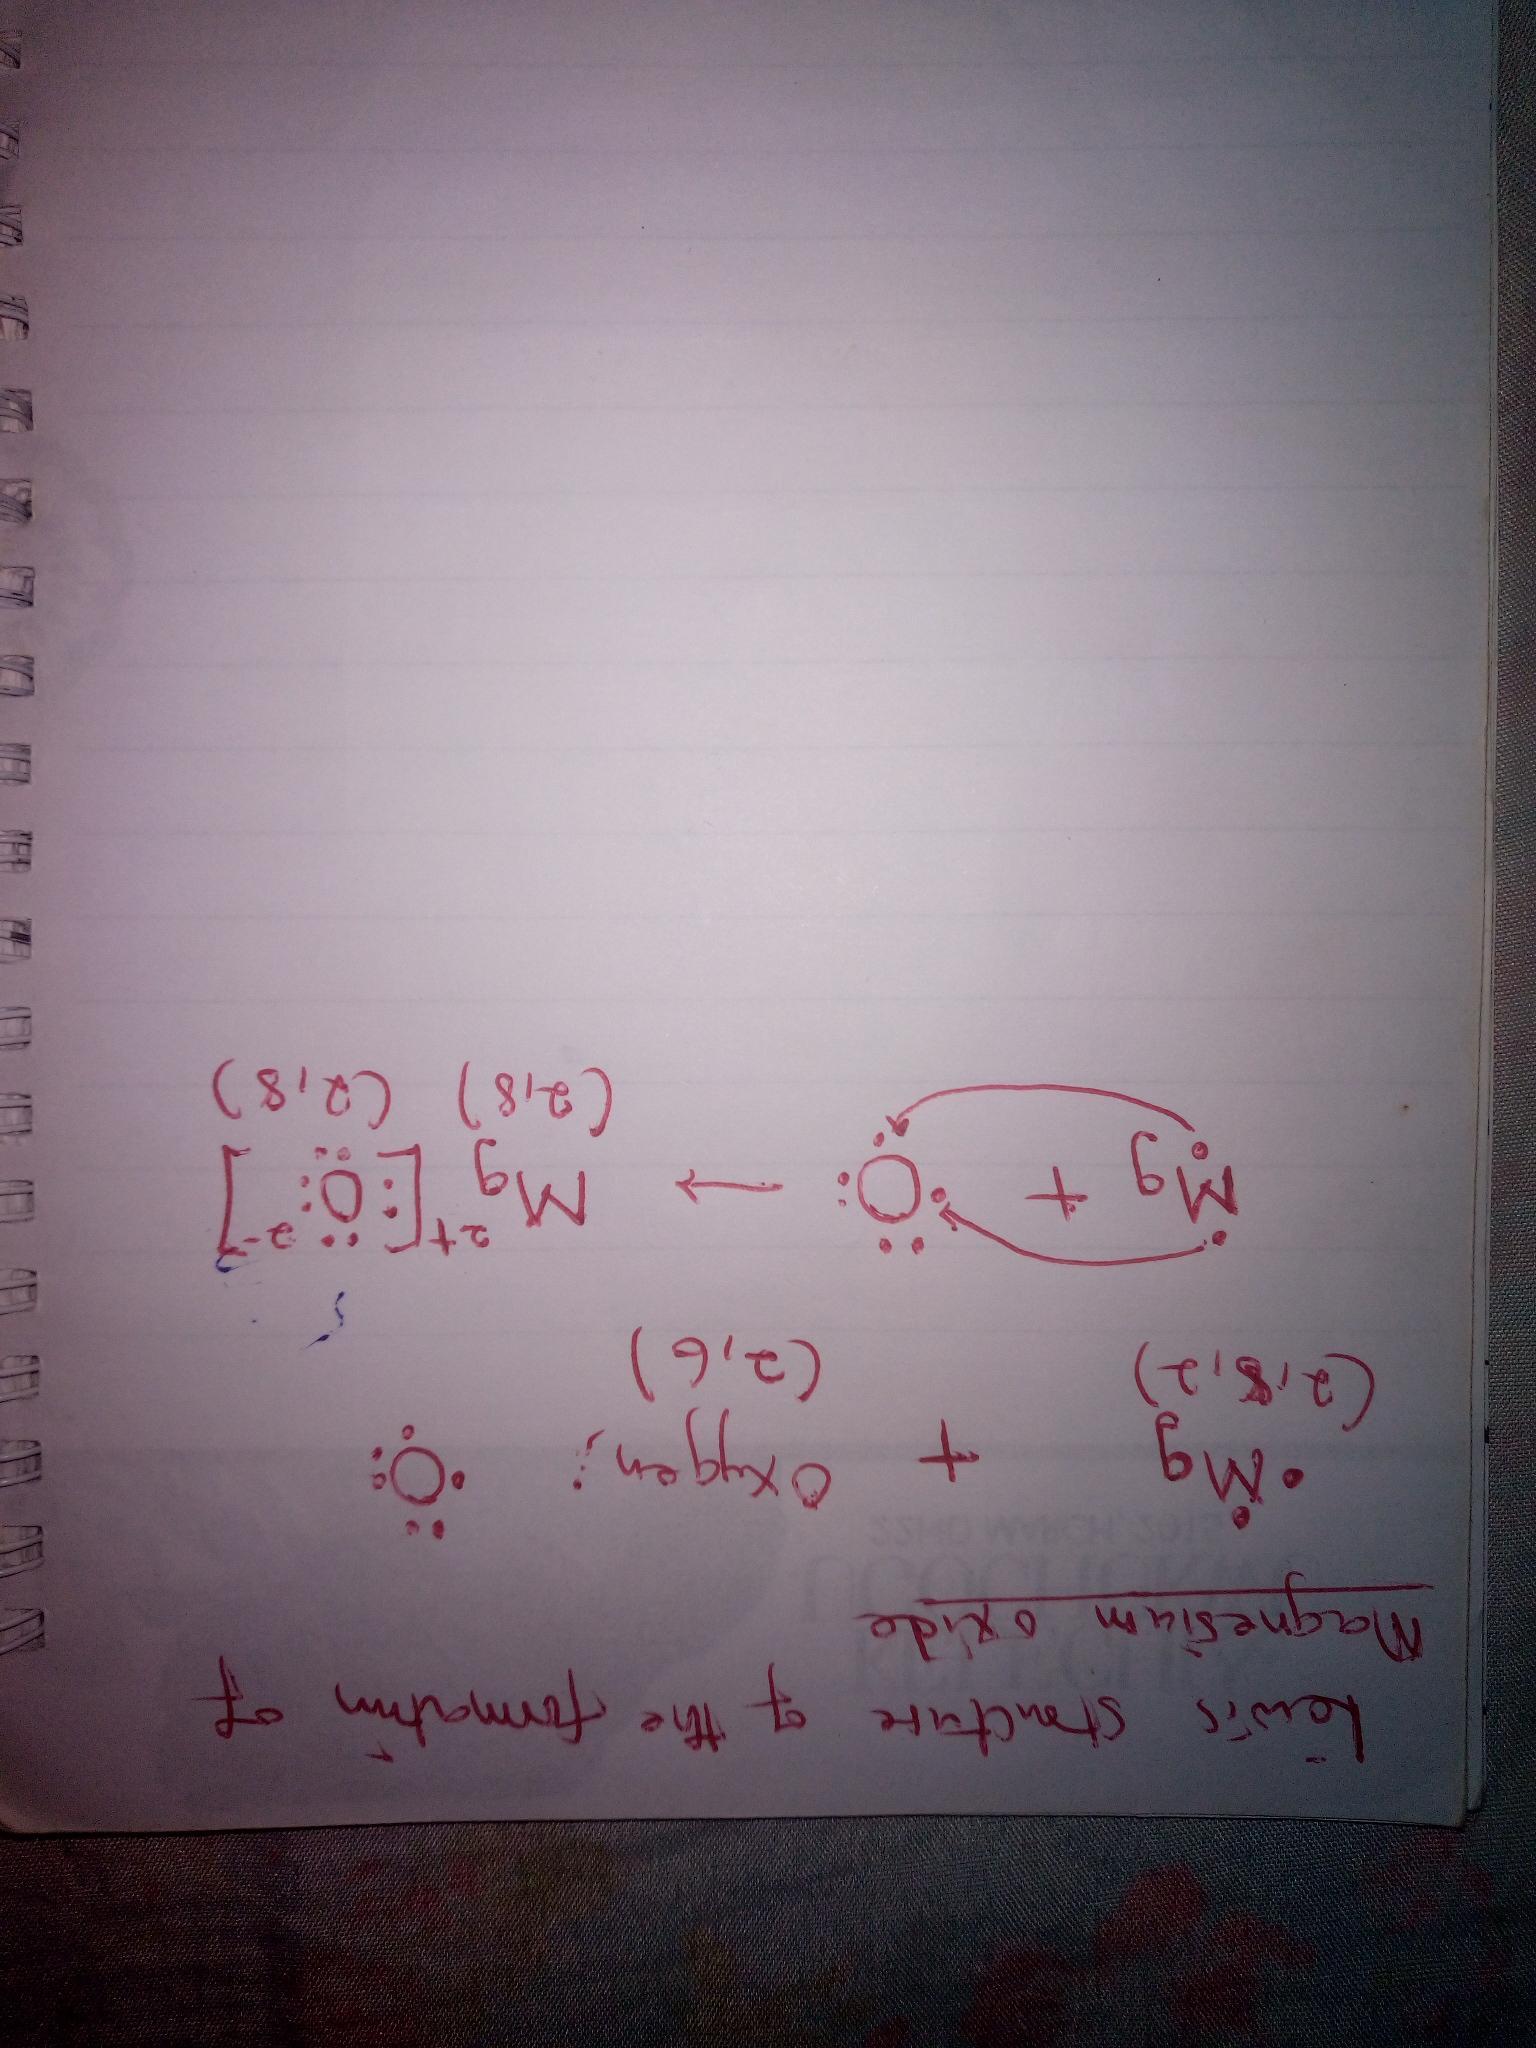 Lewis structure of the formation of
Magnesium oxide
Mg + Oxygen: O
(2,8,2) (2,6)
Mg + O → Mg²⁺ [O]²⁻
(2,8) (2,8)